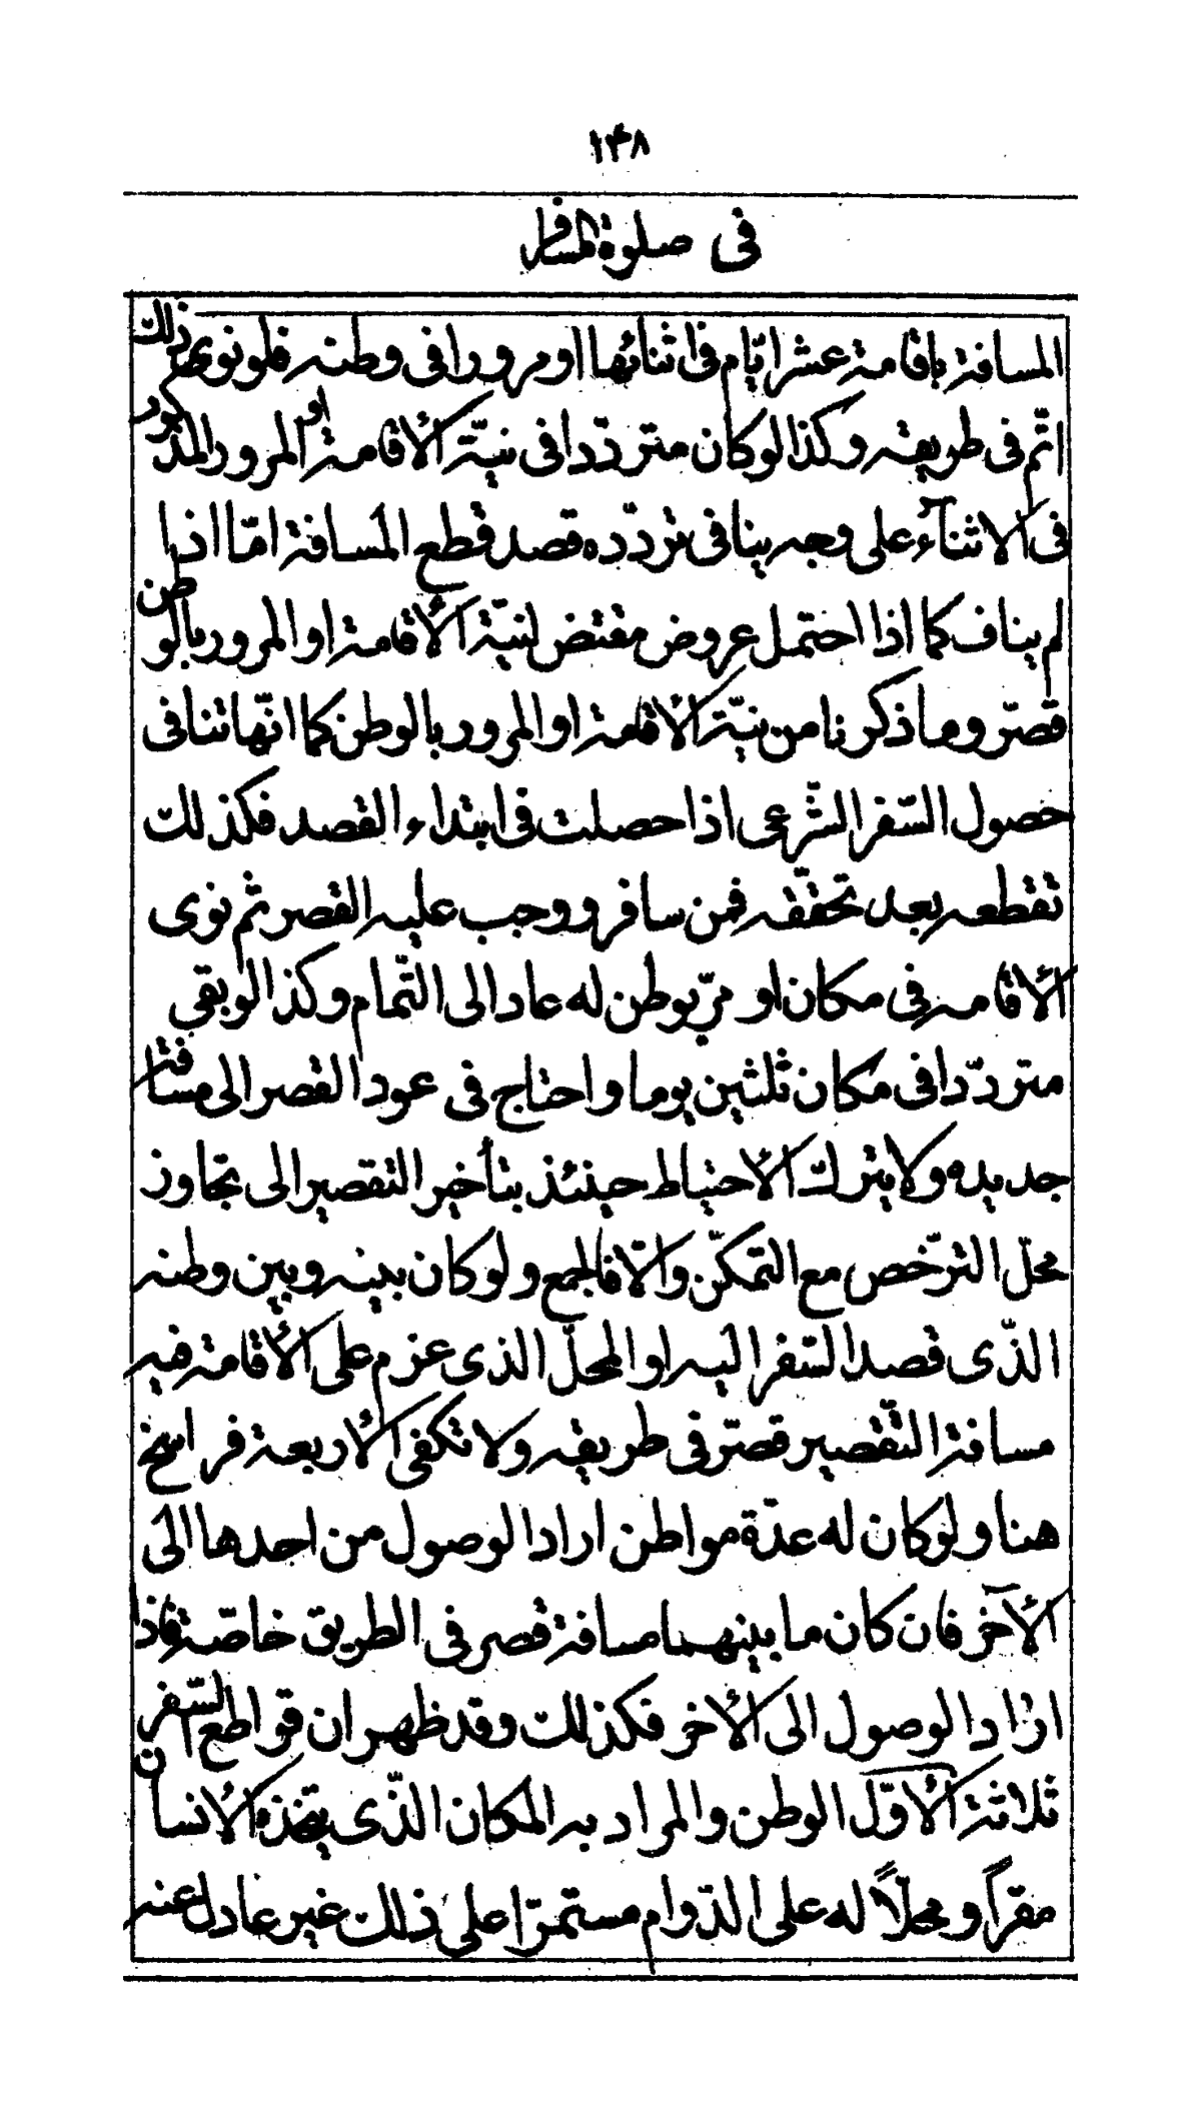 ۱۴۸
فى صلوة المسافر
المسافة باقامة عشر ايّام فى اثنائها او مرورا فى وطنه فلو نوى ذلك
اتمّ فى طريقه وكذا لو كان متردّدا فى نيّة الأقامة او المرور المذكور
فى الاثنآء على وجه ينافى تردّده قصد قطع المسافة امّا اذا
لم يناف كما اذا احتمل عروض مقتض لنيّة الأقامة او المرور بالوطن
قصّر وما ذكرنا من نيّة الأقامة او المرور بالوطن كما انّها تنافى
حصول السّفر الشّرعى اذا حصلت فى ابتداء القصد فكذلك
تقطعه بعد تحقّقه فمن سافر ووجب عليه القصر ثم نوى
الأقامه فى مكان او مرّ بوطن له عاد الى التّمام وكذا لو بقي
متردّدا فى مكان ثلثين يوما واحتاج فى عود القصر الى مسافة
جديده ولا يترك الأحتياط حينئذ بتأخير التقصير الى تجاوز
محلّ الترّخص مع التمكّن والّا فالجمع ولو كان بينه وبين وطنه
الذّى قصد السّفر اليه او المحلّ الذى عزم على الأقامة فيه
مسافة التّقصير قصّر فى طريقه ولا تكفى الأربعة فراسخ
هنا ولو كان له عدّة مواطن اراد الوصول من احدها الى
الآخر فان كان ما بينهما مسافة قصر فى الطريق خاصّة فاذا
اراد الوصول الى الأخر فكذلك وقد ظهر ان قواطع السّفر
ثلاثة الأوّل الوطن والمراد به المكان الذّى يتخذه الأنسان
مقرّاً ومحلّاً له على الدّوام مستمرّا على ذلك غير عادل عنه